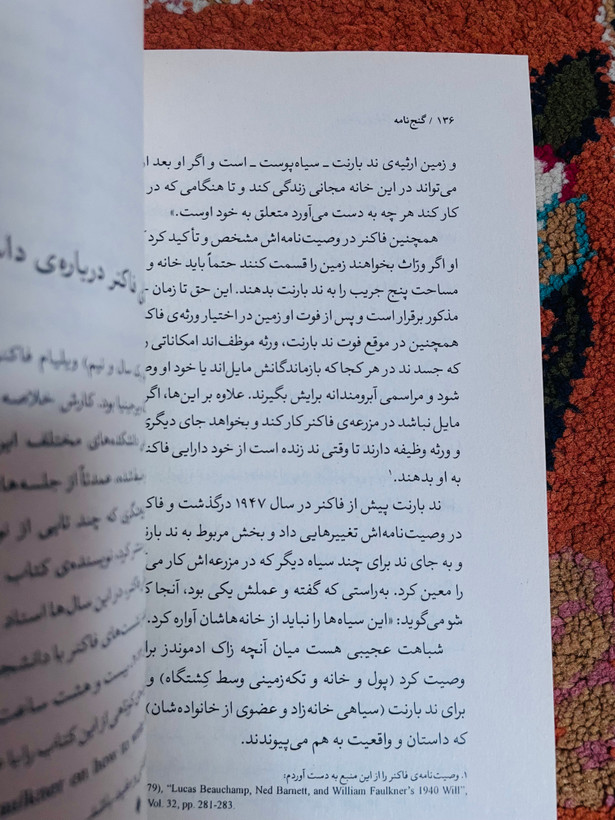 ۱۳۶ / گنج‌نامه
و زمین ارثیه‌ی ند بارنت ـ سیاه‌پوست ـ است و اگر او بعد از
می‌تواند در این خانه مجانی زندگی کند و تا هنگامی که در
کار کند هر چه به دست می‌آورد متعلق به خود اوست.»
همچنین فاکنر در وصیت‌نامه‌اش مشخص و تأکید کرد
او اگر ورّاث بخواهند زمین را قسمت کنند حتماً باید خانه و
مساحت پنج جریب را به ند بارنت بدهند. این حق تا زمان
مذکور برقرار است و پس از فوت او زمین در اختیار ورثه‌ی
همچنین در موقع فوت ند بارنت، ورثه موظف‌اند امکاناتی را
که جسد ند در هر کجا که بازماندگانش مایل‌اند یا خود او
شود و مراسمی آبرومندانه برایش بگیرند. علاوه بر این‌ها، اگر
مایل نباشد در مزرعه‌ی فاکنر کار کند و بخواهد جای دیگری
و ورثه وظیفه دارند تا وقتی ند زنده است از خود دارایی
به او بدهند.۱
ند بارنت پیش از فاکنر در سال ۱۹۴۷ درگذشت و
در وصیت‌نامه‌اش تغییرهایی داد و بخش مربوط به ند
و به جای ند برای چند سیاه دیگر که در مزرعه‌اش کار
را معین کرد. به‌راستی که گفته و عملش یکی بود، آنجا
شو می‌گوید: «این سیاه‌ها را نباید از خانه‌هاشان آواره کرد.
شباهت عجیبی هست میان آنچه زاک ادموندز
وصیت کرد (پول و خانه و تکه‌زمینی وسط کِشتگاه) و
برای ند بارنت (سیاهی خانه‌زاد و عضوی از خانواده‌شان)
که داستان و واقعیت به هم می‌پیوندند.
۱. وصیت‌نامه‌ی فاکنر را از این منبع به دست آوردم:
79), "Lucas Beauchamp, Ned Barnett, and William Faulkner's 1940 Will",
Vol. 32, pp. 281-283.
فاکنر درباره‌ی
ویلیام
بود. کارش خلاصه
دانشکده‌های مختلف
عمدتاً از جلسه‌ها
که چند تایی از
نویسنده‌ی کتاب
در این سال‌ها استاد
فاکنر با
بیست و هشت ساعت
از این کتاب را
aulkner on how to